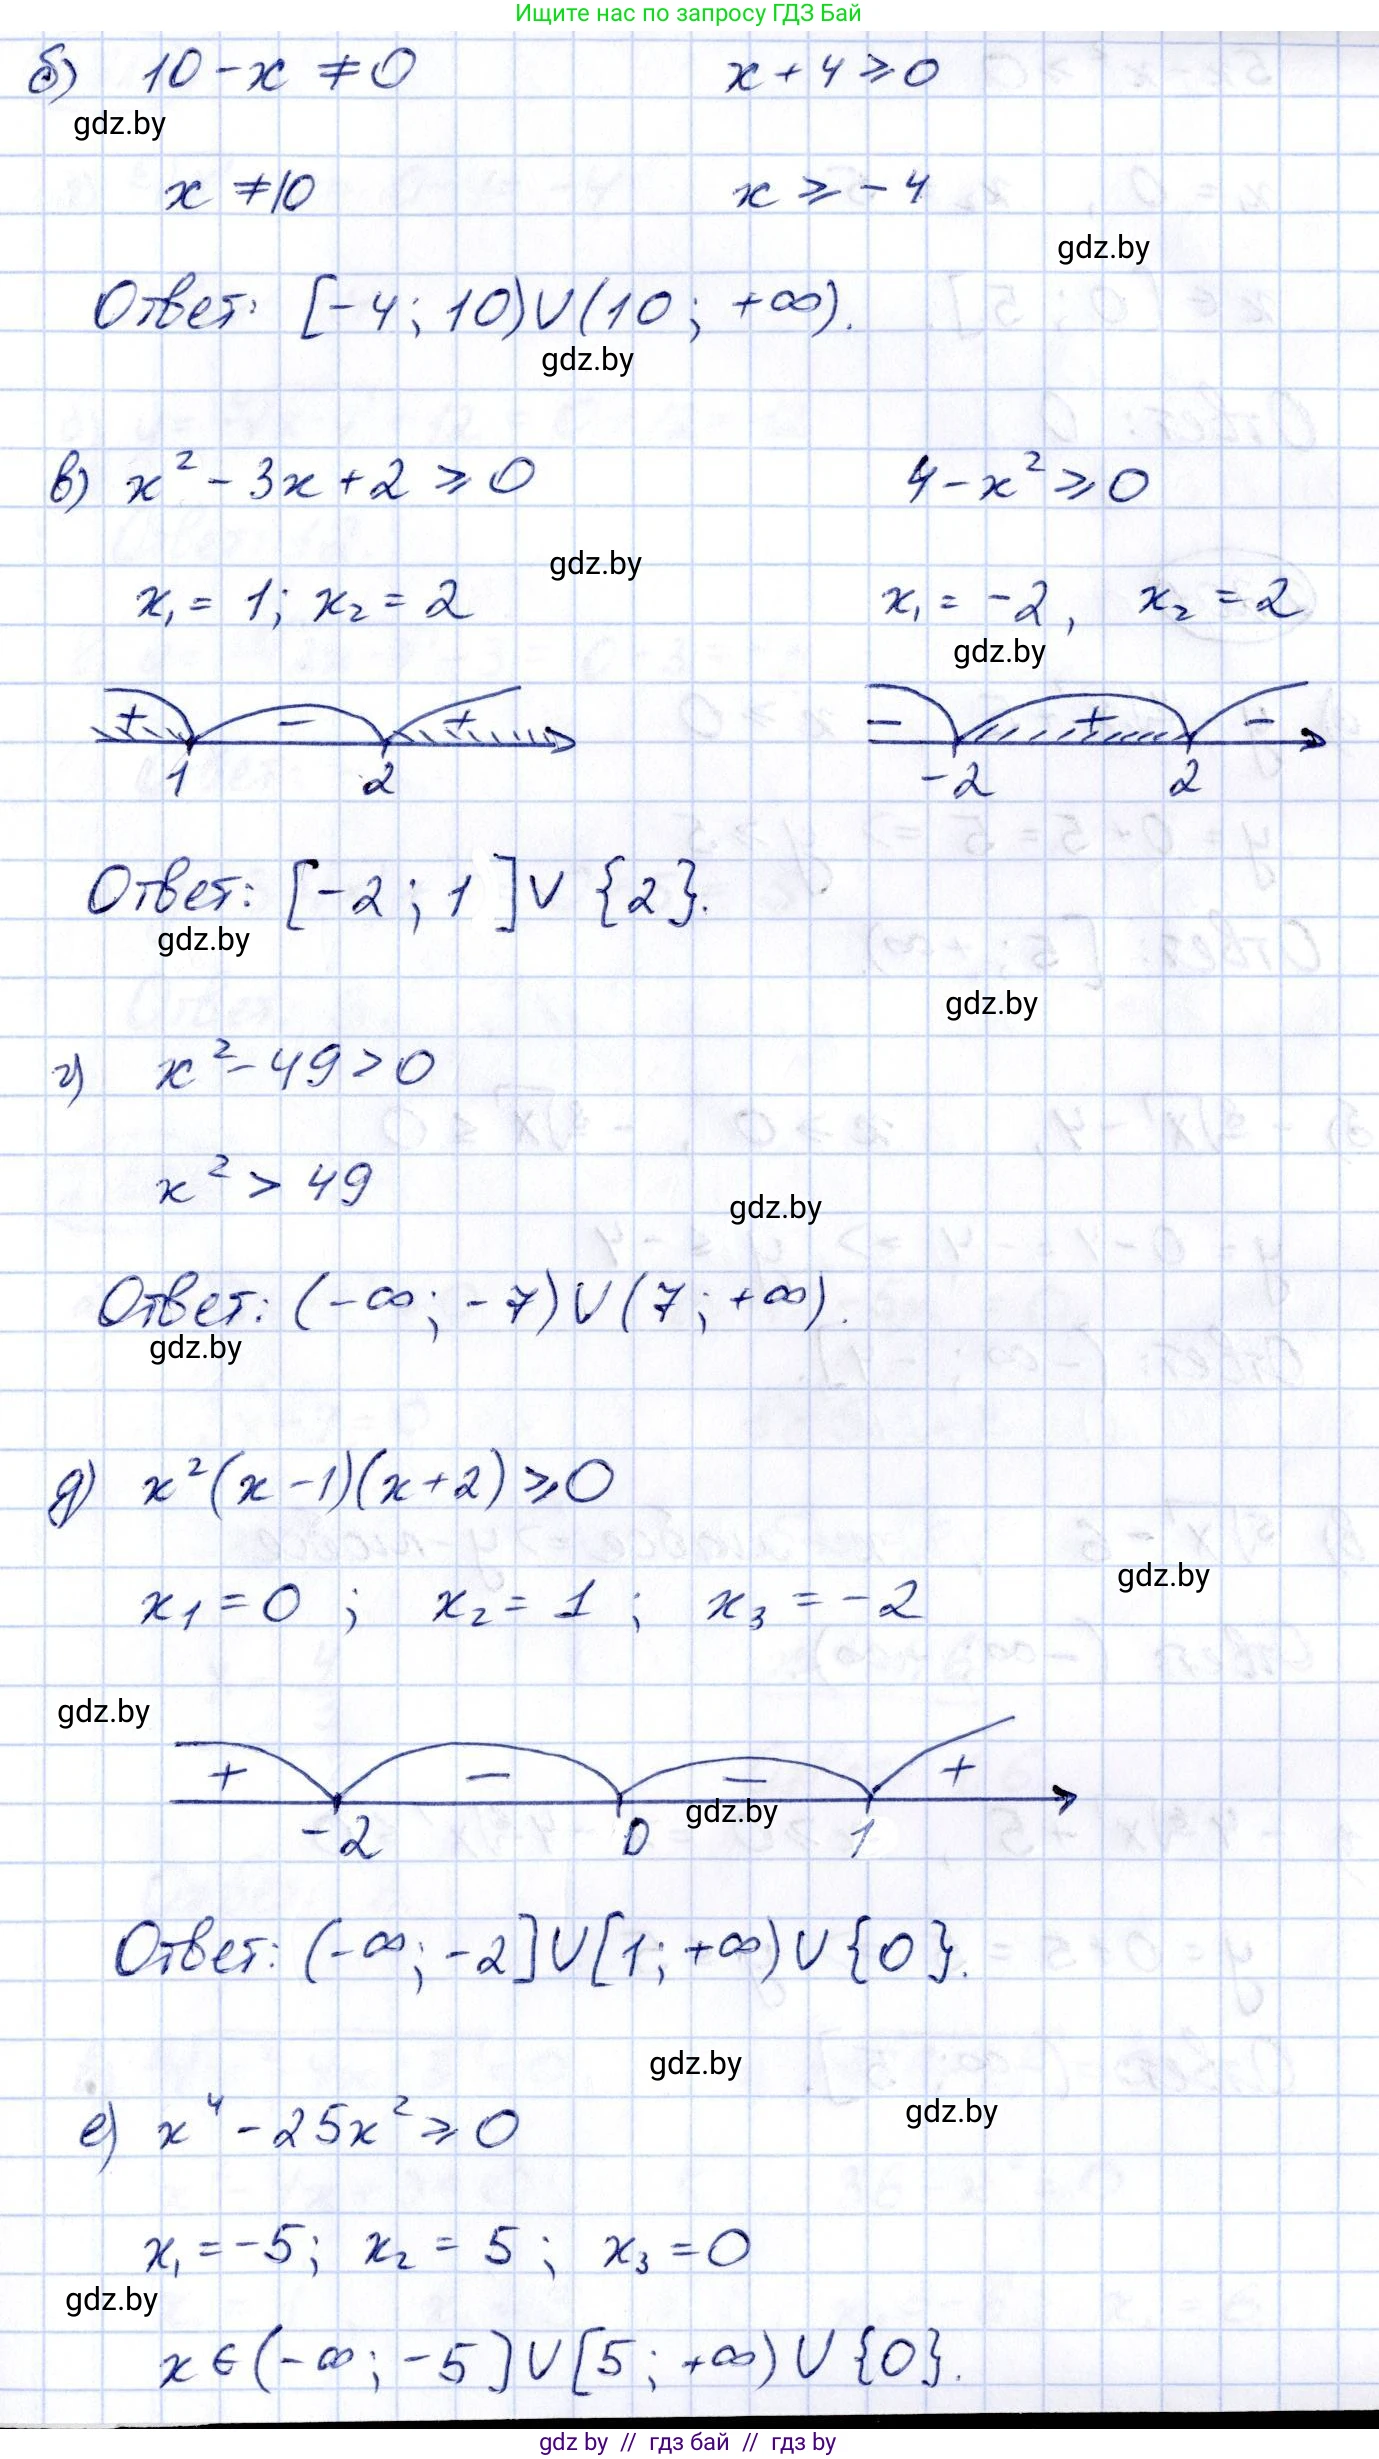 Ищите нас по запросу ГДЗ Бай
б) 10 - x ≠ 0 x + 4 ⩾ 0
gdz.by
x ≠ 10 x ⩾ - 4
gdz.by
Ответ: [-4; 10) ∪ (10; +∞).
gdz.by
в) x² - 3x + 2 ⩾ 0 4 - x² ⩾ 0
gdz.by
x₁ = 1; x₂ = 2 x₁ = -2, x₂ = 2
gdz.by
+ - + - + -
1 2 -2 2
Ответ: [-2; 1] ∪ {2}.
gdz.by
gdz.by
г) x² - 49 > 0
x² > 49
gdz.by
Ответ: (-∞; -7) ∪ (7; +∞).
gdz.by
д) x²(x - 1)(x + 2) ⩾ 0
gdz.by
x₁ = 0; x₂ = 1; x₃ = -2
gdz.by
+ - - +
gdz.by
-2 0 1
Ответ: (-∞; -2] ∪ [1; +∞) ∪ {0}.
gdz.by
gdz.by
е) x⁴ - 25x² ⩾ 0
x₁ = -5; x₂ = 5; x₃ = 0
gdz.by
x ∈ (-∞; -5] ∪ [5; +∞) ∪ {0}.
gdz by // гдз бай // гдз by